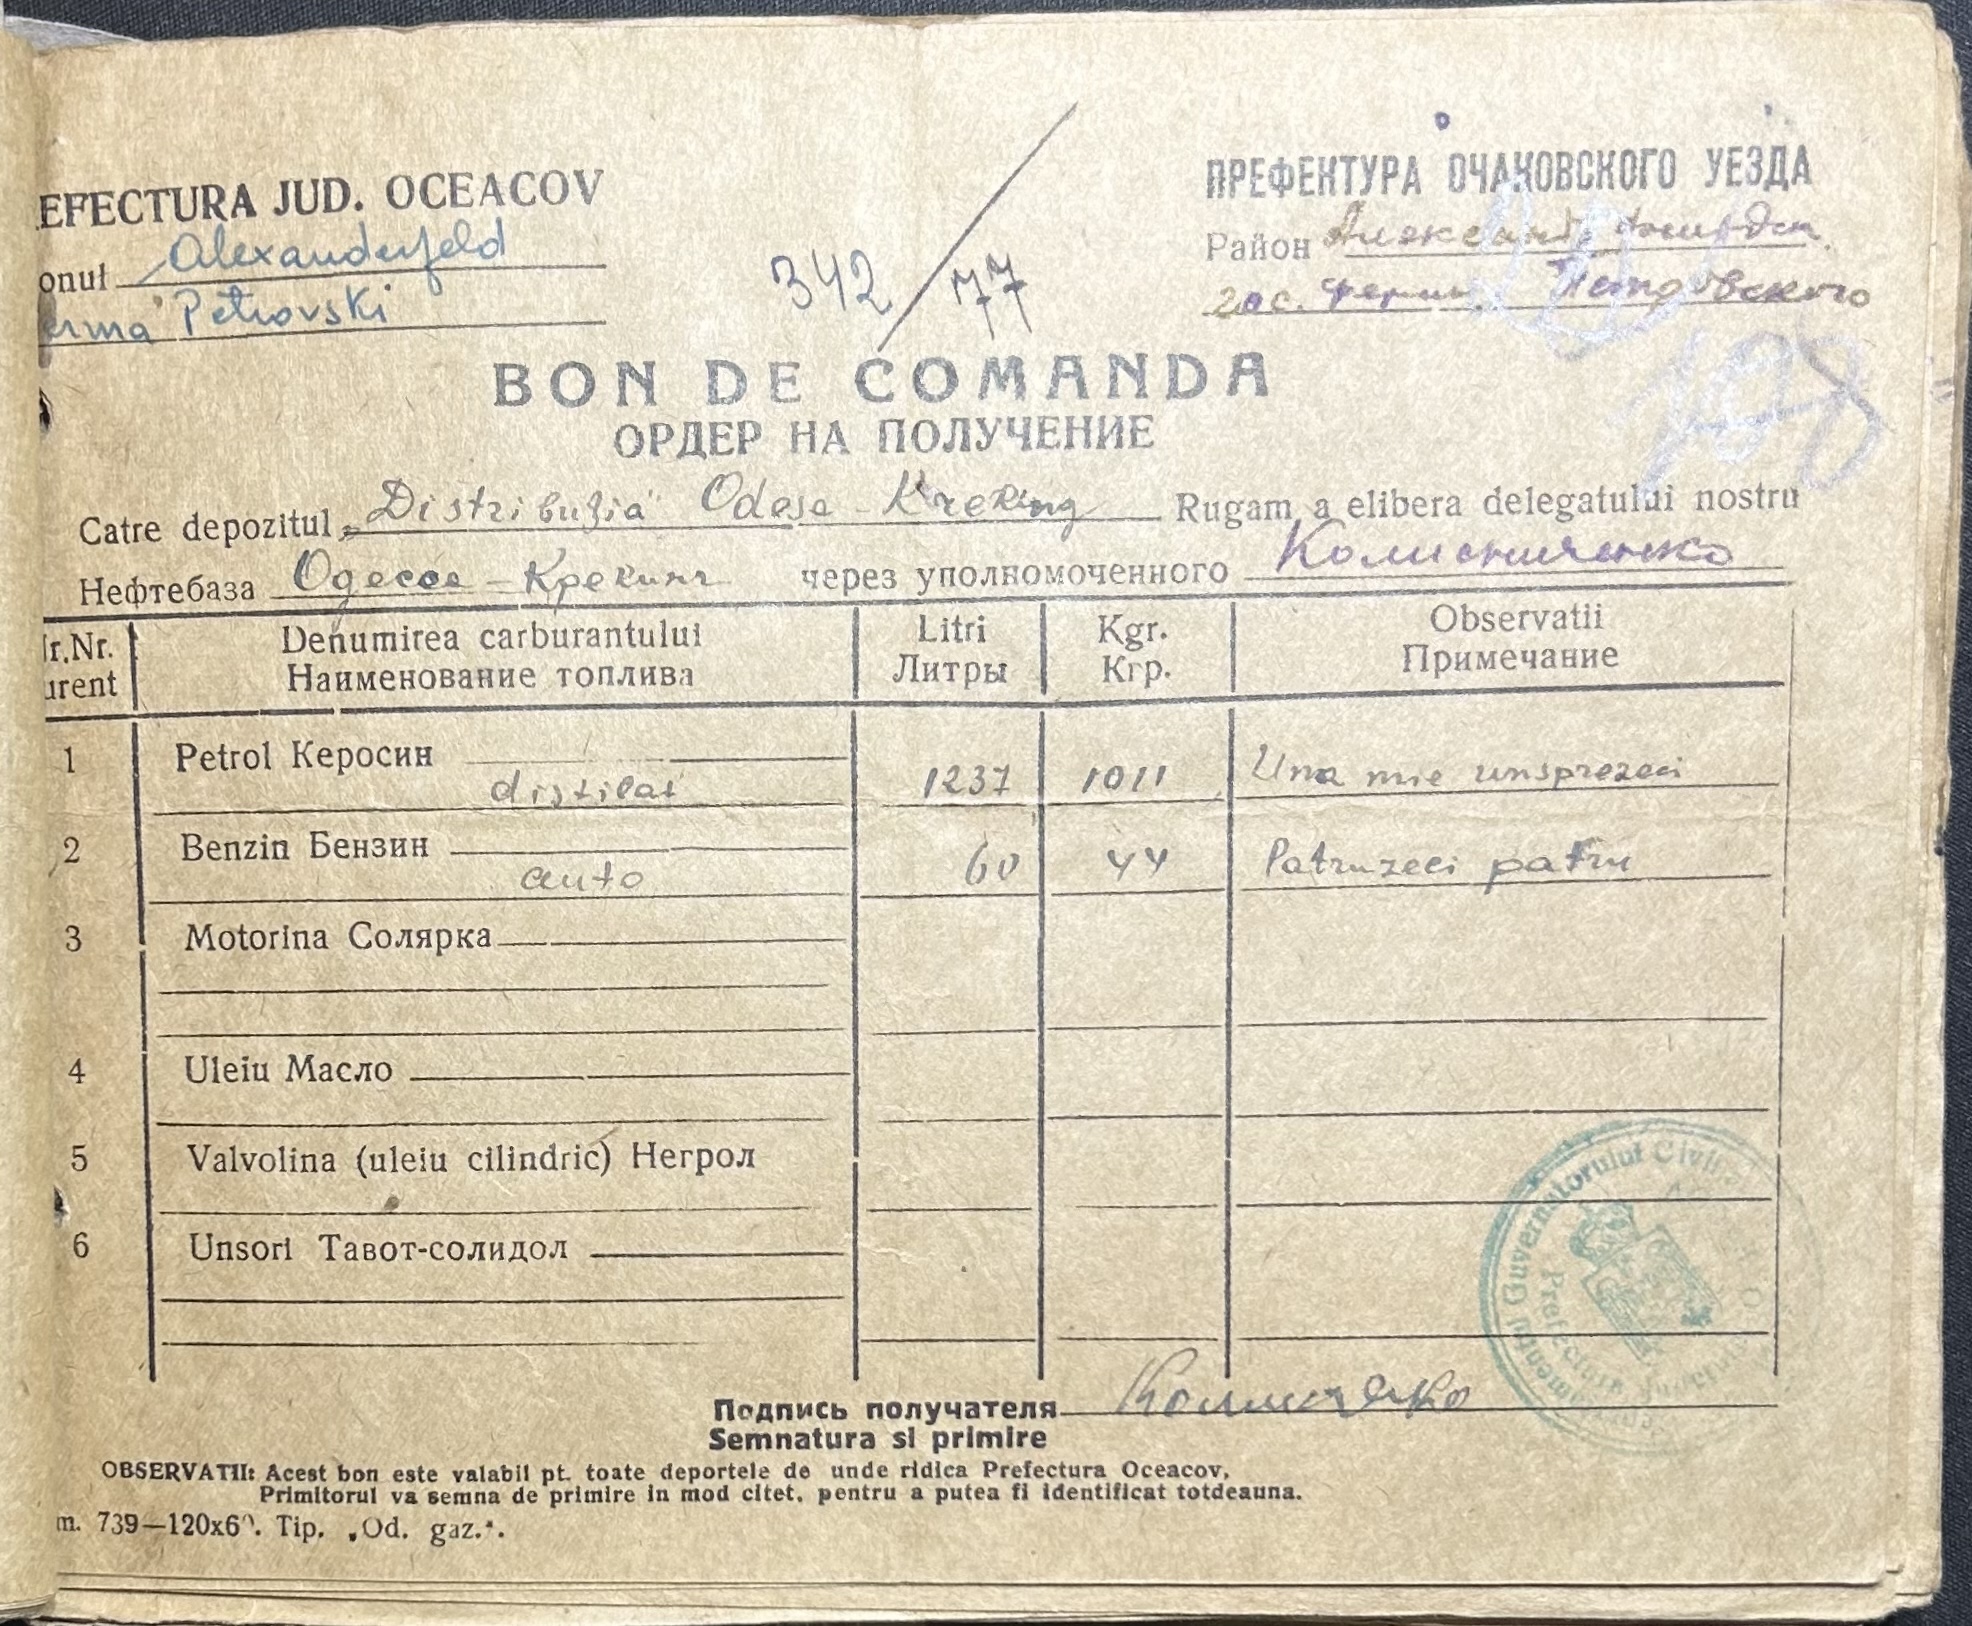 EFECTURA JUD. OCEACOV
onul Alexanderfeld
erma Petrovski
342/77
ПРЕФЕКТУРА ОЧАКОВСКОГО УЕЗДА
Район
гос. фермы Петровского
108
BON DE COMANDA
ОРДЕР НА ПОЛУЧЕНИЕ
Catre depozitul „Distribuția" Odesa Kreking Rugam a elibera delegatului nostru
Нефтебаза Одесса - Крекинг через уполномоченного Колисниченко
r.Nr. Denumirea carburantului Litri Kgr. Observatii
urent Наименование топлива Литры Кгр. Примечание
1 Petrol Керосин
distilat 1237 1011 Una mie unsprezeci
2 Benzin Бензин
auto 60 44 Patruzeci patru
3 Motorina Солярка
4 Uleiu Масло
5 Valvolina (uleiu cilindric) Негрол
6 Unsori Тавот-солидол
Guvernatorului Civil
Prefectura
Подпись получателя
Semnatura si primire
OBSERVATII: Acest bon este valabil pt. toate deportele de unde ridica Prefectura Oceacov,
Primitorul va semna de primire in mod citet, pentru a putea fi identificat totdeauna.
m. 739—120x6 . Tip. „Od. gaz.".